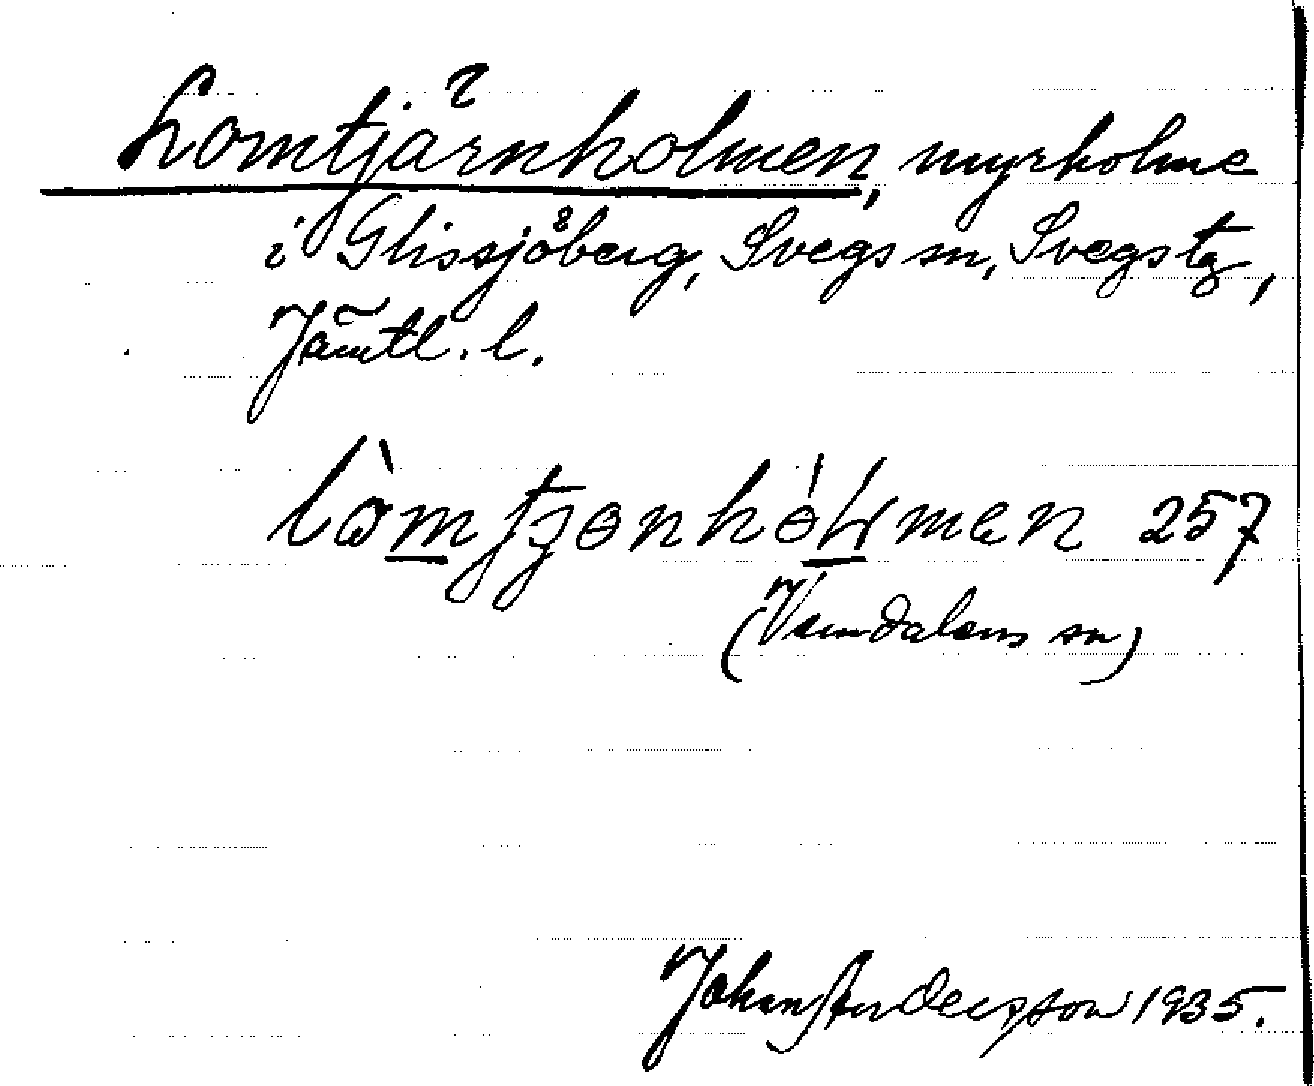 Lomtjärnholmen, myrholme
i Glissjöberg, Svegs sn, Svegs tg,
Jämtl. l.
257
(Vemdalens sn)
Johan Andersson 1935.